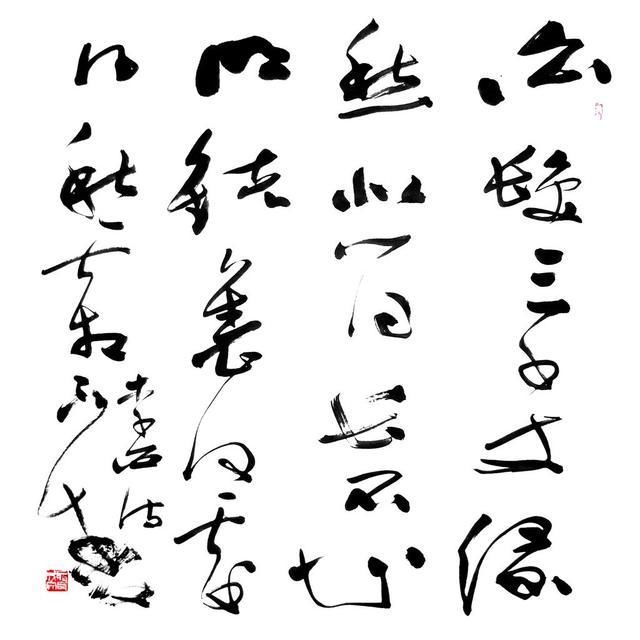 白髮三千丈緣
愁似個長不知
明鏡裏何處
得秋霜
李白诗